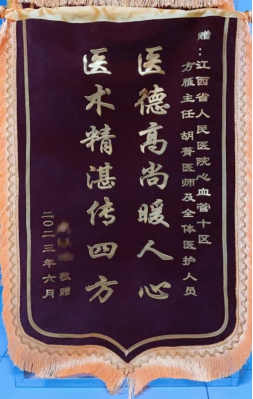 赠：江西省人民医院心血管十区
方雁主任 胡菁医师及全体医护人员
医德高尚暖人心
医术精湛传四方
敬赠
二〇二三年六月